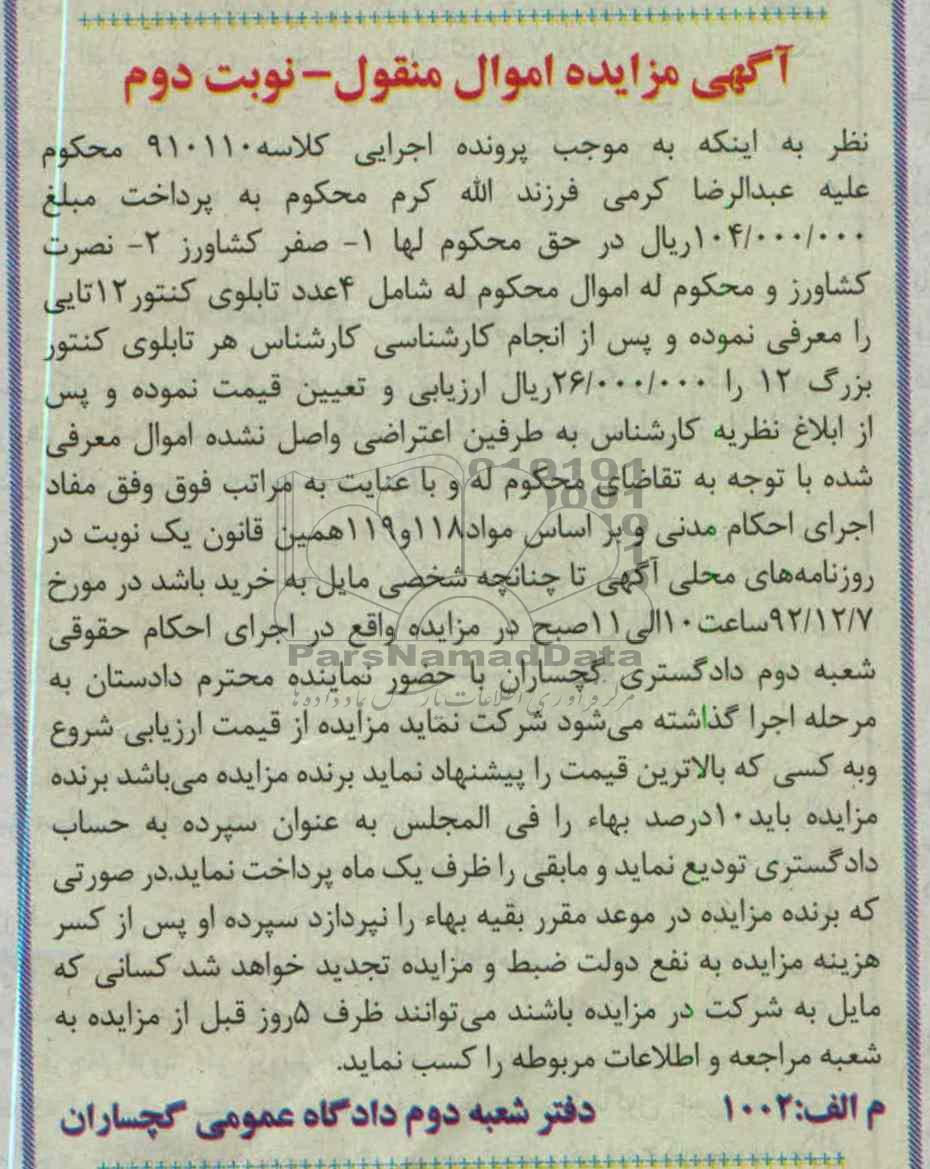 آگهی مزایده اموال منقول – نوبت دوم
نظر به اینکه به موجب پرونده اجرایی کلاسه ۹۱۰۱۱۰ محکوم
علیه عبدالرضا کرمی فرزند الله کرم محکوم به پرداخت مبلغ
۱۰۴/۰۰۰/۰۰۰ریال در حق محکوم لها ۱- صفر کشاورز ۲- نصرت
کشاورز و محکوم له اموال محکوم له شامل ۴عدد تابلوی کنتور۱۲تایی
را معرفی نموده و پس از انجام کارشناسی کارشناس هر تابلوی کنتور
بزرگ ۱۲ را ۲۶/۰۰۰/۰۰۰ریال ارزیابی و تعیین قیمت نموده و پس
از ابلاغ نظریه کارشناس به طرفین اعتراضی واصل نشده اموال معرفی
شده با توجه به تقاضای محکوم له و با عنایت به مراتب فوق وفق مفاد
اجرای احکام مدنی و بر اساس مواد۱۱۸و۱۱۹همین قانون یک نوبت در
روزنامه‌های محلی آگهی تا چنانچه شخصی مایل به خرید باشد در مورخ
۹۲/۱۲/۷ساعت۱۰الی۱۱صبح در مزایده واقع در اجرای احکام حقوقی
ParsNamadData
شعبه دوم دادگستری گچساران با حضور نماینده محترم دادستان به
مرحله اجرا گذاشته می‌شود شرکت نماید مزایده از قیمت ارزیابی شروع
وبه کسی که بالاترین قیمت را پیشنهاد نماید برنده مزایده می‌باشد برنده
مزایده باید۱۰درصد بهاء را فی المجلس به عنوان سپرده به حساب
دادگستری تودیع نماید و مابقی را ظرف یک ماه پرداخت نماید.در صورتی
که برنده مزایده در موعد مقرر بقیه بهاء را نپردازد سپرده او پس از کسر
هزینه مزایده به نفع دولت ضبط و مزایده تجدید خواهد شد کسانی که
مایل به شرکت در مزایده باشند می‌توانند ظرف ۵روز قبل از مزایده به
شعبه مراجعه و اطلاعات مربوطه را کسب نماید.
م الف:۱۰۰۲ دفتر شعبه دوم دادگاه عمومی گچساران